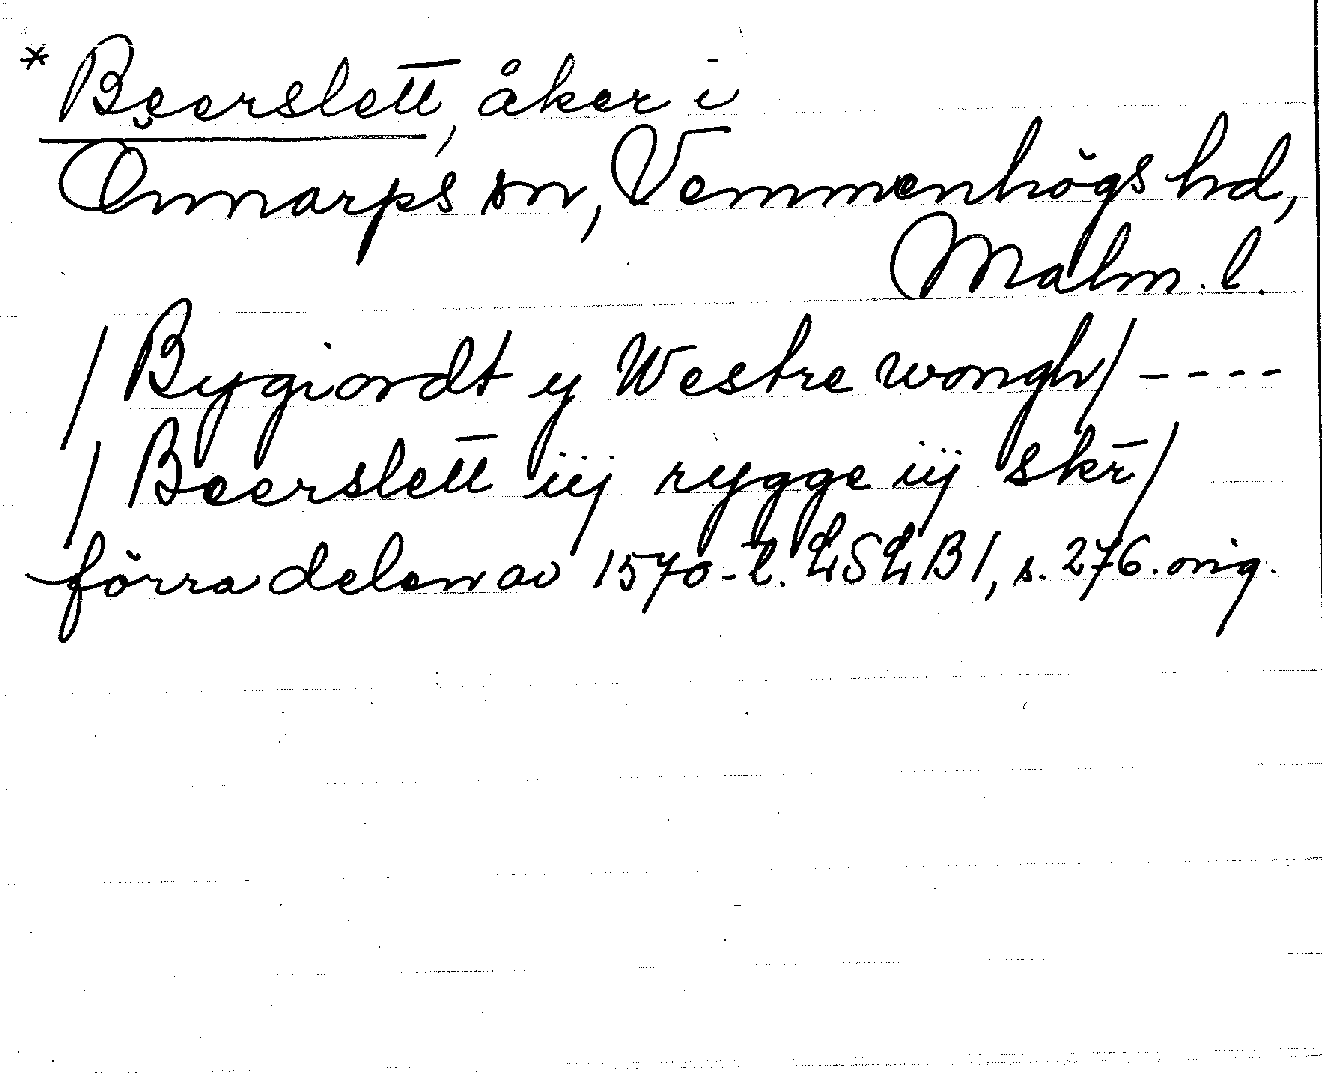 * Beerslett, åker i
Önnarps sn, Vemmenhögs hd,
Malm. l.
/ Bygiordt y Westre wongh / - - - -
/ Beerslett iij rygge iij skr̄ /
förra delen av 1570-t. LSLB 1, s. 276. orig.